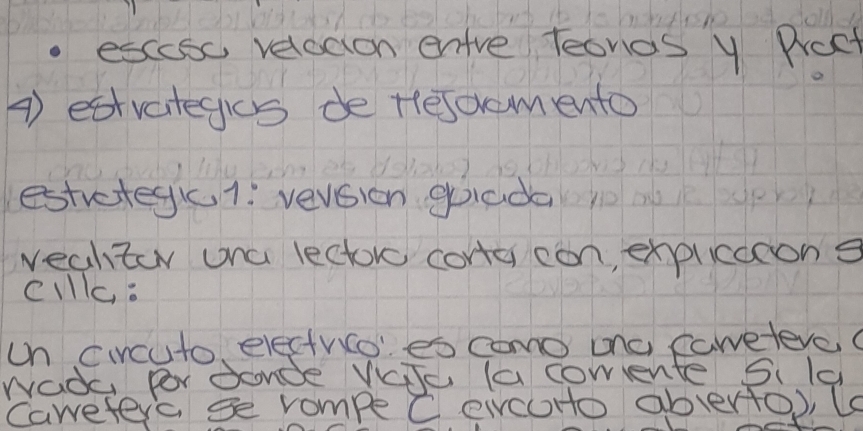 • escasa relacion entre Teorias y Pract
4) estrategias de Mejoramiento
estrategia 1: revision guiada
realizar una lectora corta con, explicacion s
cilla:
un circuto electrico: es como una carretera c
rrada por donde viaja la corriente si la
carretera se rompe C circuito abierto), la